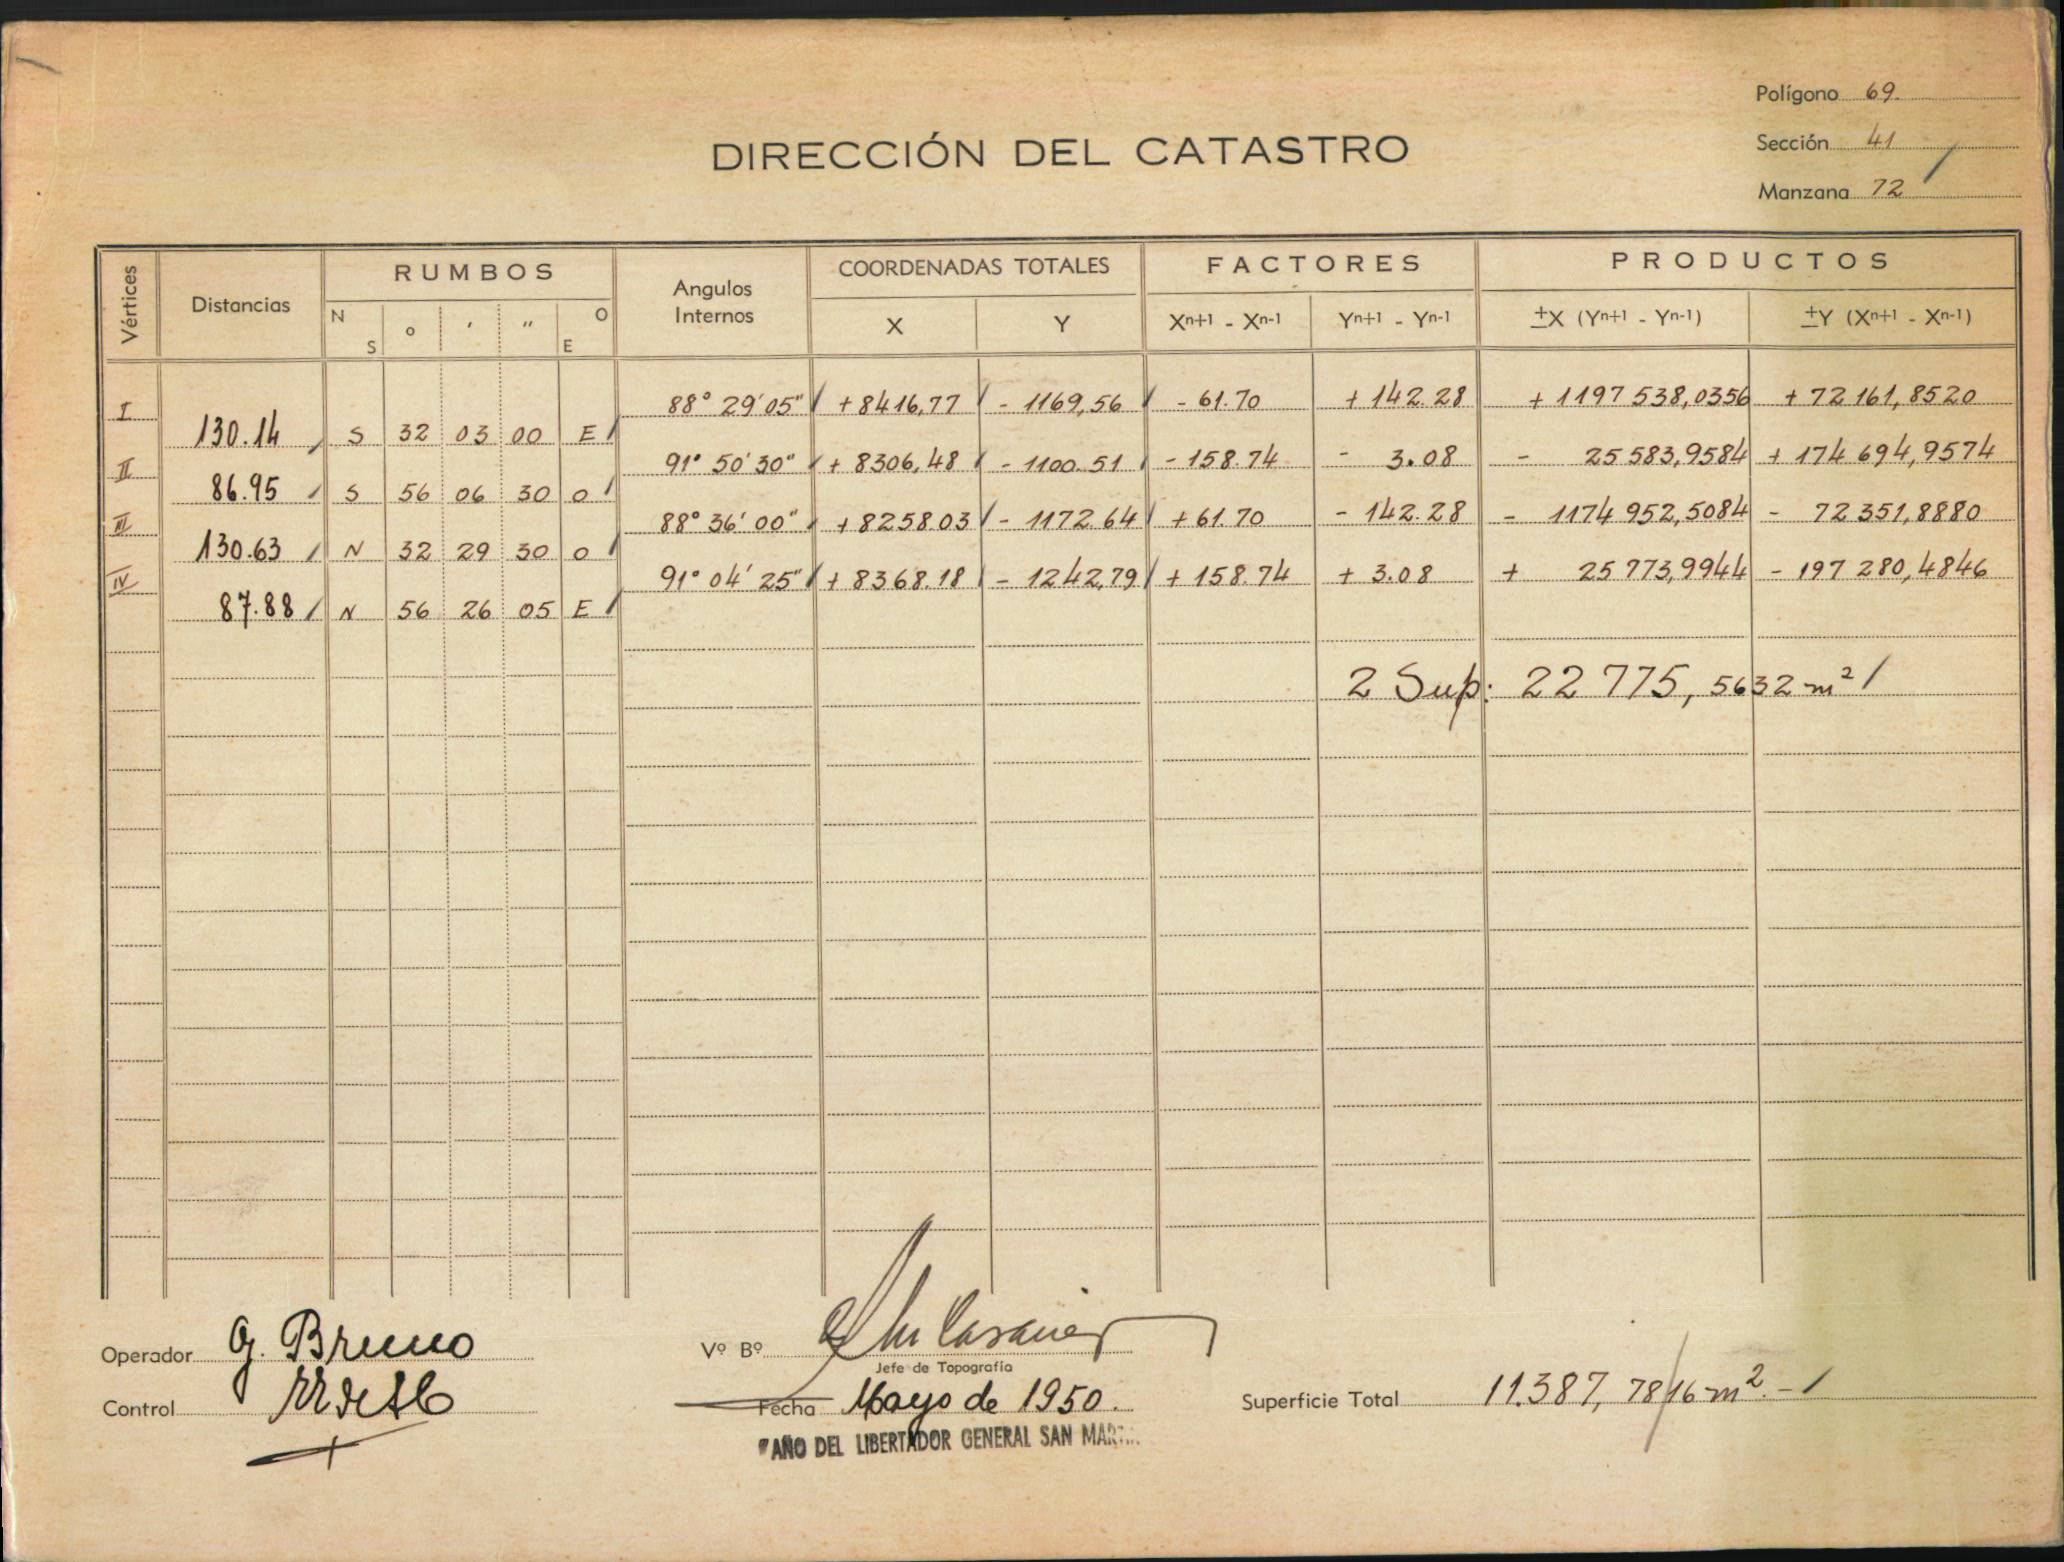 Polígono 69.
Sección 41
Manzana 72
DIRECCIÓN DEL CATASTRO
Vértices Distancias RUMBOS Angulos Internos COORDENADAS TOTALES FACTORES PRODUCTOS
N S o ′ ″ O E X Y Xn+1 - Xn-1 Yn+1 - Yn-1 ±X (Yn+1 - Yn-1) ±Y (Xn+1 - Xn-1)
I 88° 29′ 05″ + 8416,77 - 1169,56 - 61.70 + 142.28 + 1197 538,0356 + 72 161,8520
130.14 S 32 03 00 E
II 91° 50′ 30″ + 8306,48 - 1100.51 - 158.74 - 3.08 - 25 583,9584 + 174 694,9574
86.95 S 56 06 30 O
III 88° 36′ 00″ + 8258.03 - 1172.64 + 61.70 - 142.28 - 1174 952,5084 - 72 351,8880
130.63 N 32 29 30 O
IV 91° 04′ 25″ + 8368.18 - 1242,79 + 158.74 + 3.08 + 25 773,9944 - 197 280,4846
87.88 N 56 26 05 E
2 Sup: 22 775, 5632 m²
Operador G. Bruno
Vº Bº
Jefe de Topografía
Control
Fecha Mayo de 1950.
Superficie Total 11.387, 7816 m². -
"AÑO DEL LIBERTADOR GENERAL SAN